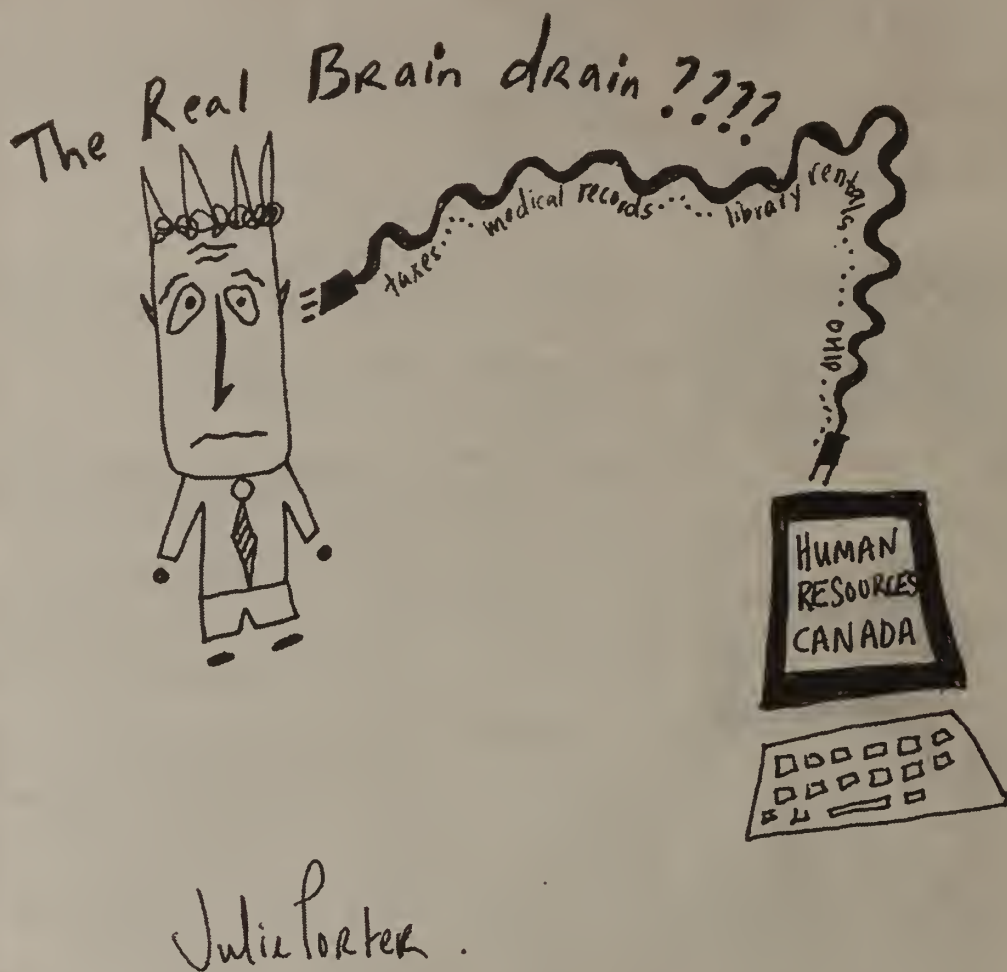 The Real Brain drain ????
taxes..... medical records........ library rentals....... OHIP.....
HUMAN
RESOURCES
CANADA
Julie Porter.